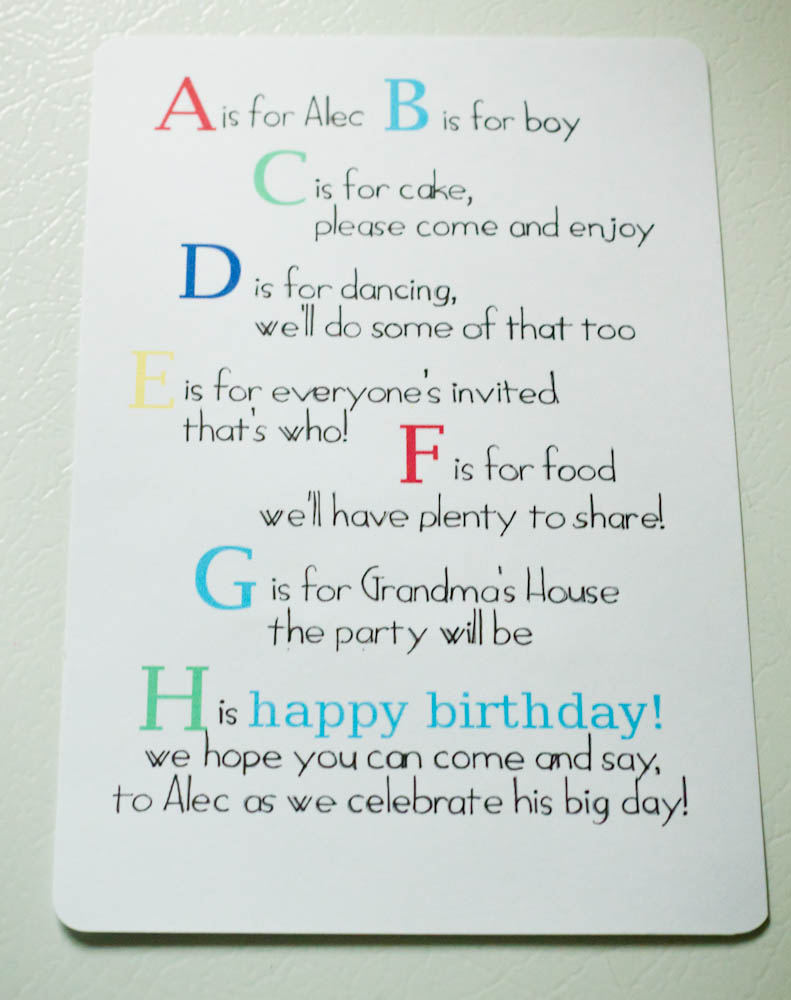 A is for Alec B is for boy
C is for cake,
please come and enjoy
D is for dancing,
we'll do some of that too
E is for everyone's invited
that's who!
F is for food
we'll have plenty to share!
G is for Grandma's House
the party will be
H is happy birthday!
we hope you can come and say,
to Alec as we celebrate his big day!